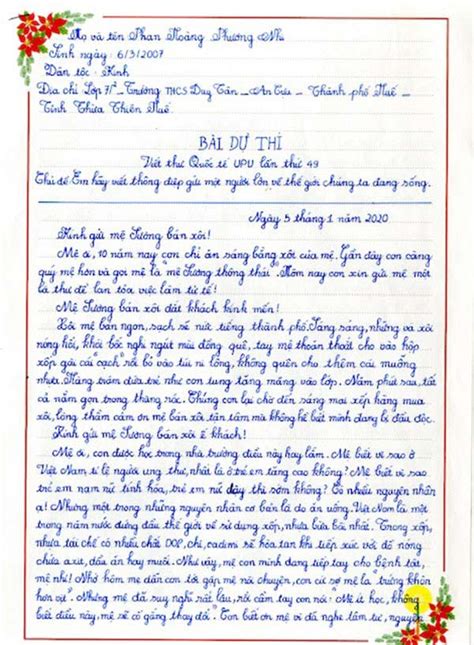 Họ và tên Phan Hoàng Phương Nhi
Sinh ngày: 6/3/2007
Dân tộc: Kinh
Địa chỉ Lớp 7/1 – Trường THCS Duy Tân – An Cựu – Thành phố Huế –
Tỉnh Thừa Thiên Huế.
BÀI DỰ THI
Viết thư Quốc tế UPU lần thứ 49
Chủ đề Em hãy viết thông điệp gửi một người lớn về thế giới chúng ta đang sống.
Ngày 5 tháng 1 năm 2020
Kính gửi mệ Sương bán xôi!
Mệ ơi, 10 năm nay con chỉ ăn sáng bằng xôi của mệ. Gần đây con càng
quý mệ hơn và gọi mệ là mệ Sương thông thái". Hôm nay con xin gửi mệ một
lá thư để lan tỏa việc làm tử tế!
Mệ Sương bán xôi đắt khách kính mến!
Xôi mệ bán ngon, sạch sẽ nức tiếng thành phố. Sáng sáng, những vá xôi
nóng hổi, khói bốc nghi ngút mùi đồng quê, tay mệ thoăn thoắt cho vào hộp
xốp gói cái "cạch" rồi bỏ vào túi ni lông, không quên cho thêm cái muỗng
nhựa. Hàng trăm đứa trẻ như con tung tăng mang vào lớp. Năm phút sau, tất
cả nằm gọn trong thùng rác. Chúng con lại chờ đến sáng mai xếp hàng mua
xôi, lòng thầm cảm ơn mệ bán xôi tận tâm mà không hề biết mình đang bị đầu độc.
Kính gửi mệ Sương bán xôi ế khách!
Mệ ơi, con được học trong nhà trường điều này hay lắm. Mệ biết vì sao ở
Việt Nam tỉ lệ người ung thư, nhất là ở trẻ em tăng cao không? Mệ biết vì sao
trẻ em nam nữ tính hóa, trẻ em nữ dậy thì sớm không? Có nhiều nguyên nhân
ạ! Nhưng một trong những nguyên nhân cơ bản là do ăn uống. Việt Nam là một
trong năm nước đứng đầu thế giới về sử dụng xốp, nhựa bừa bãi nhất. Trong xốp,
nhựa tái chế có nhiều chất DOP, chì, cadimi sẽ hòa tan khi tiếp xúc với đồ nóng
chứa axit, dầu ăn hay muối. Như vậy, mệ con mình đang tiếp tay cho bệnh tật,
mệ nhỉ! Nhớ hôm mẹ dẫn con tới gặp mệ nói chuyện, con cứ sợ mệ là "trứng khôn
hơn vịt". Nhưng mệ đã suy nghĩ rất lâu, rồi cầm tay con nói: "Mệ ít học, không
biết điều này, mệ sẽ cố gắng thay đổi". Con biết ơn mệ vì đã nghe làm tư, nguyên